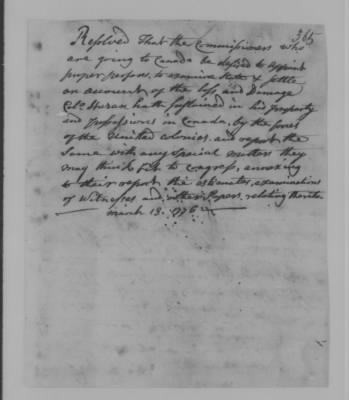 365
Resolved That the Commissioners who
are going to Canada be desired to appoint
proper persons, to examine state & settle
an account of the loss and Damage
Colo. Hazen hath sustained in his property
and possessions in Canada, by the forces
of the United Colonies, and report the
same with any special matters they
may think fit to Congress, annexing
to their report the estimates, examinations
of Witnesses and other Papers, relating thereto
March 13. 1776